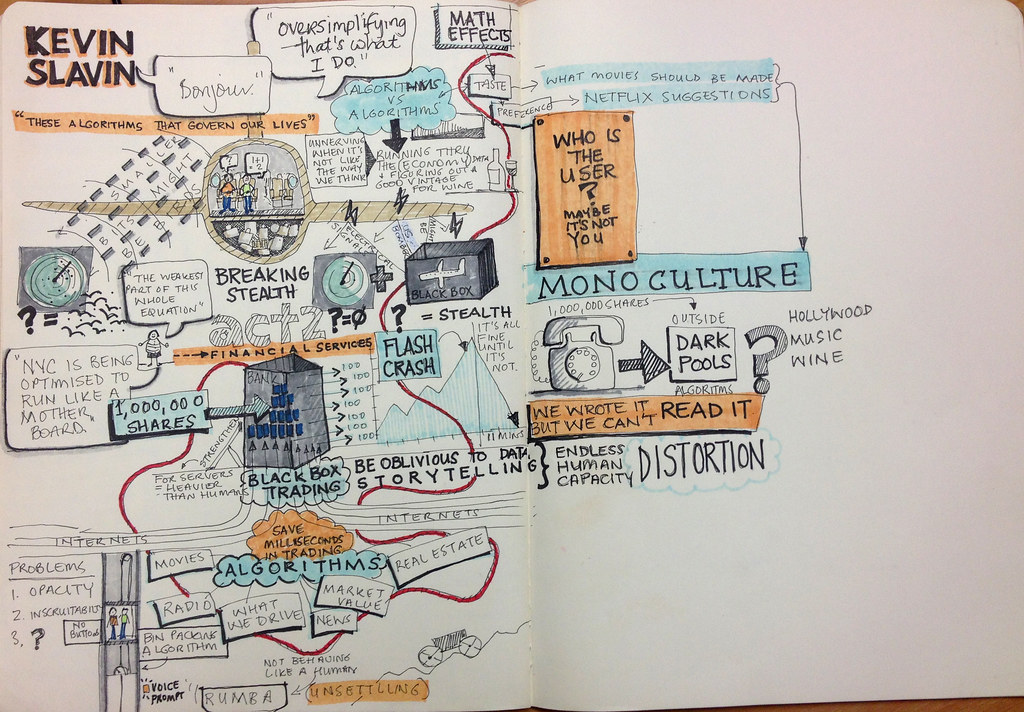 KEVIN
SLAVIN
"Bonjour."
"Oversimplifying
that's what
I DO."
MATH
EFFECTS
"THESE ALGORITHMS THAT GOVERN OUR LIVES"
ALGORITHMS
VS
ALGORITHMS
TASTE
PREFERENCE
WHAT MOVIES SHOULD BE MADE
NETFLIX SUGGESTIONS
UNNERVING
WHEN IT'S
NOT LIKE
THE WAY
WE THINK
RUNNING THRU
THE (ECONOMY) DATA
& FIGURING OUT A
GOOD VINTAGE
FOR WINE
WHO IS
THE
USER
?
MAYBE
IT'S NOT
YOU
SMALL
MIGHT
BITS
BE
?
1+1
=2
ELECTRICAL
SIGNALS
MIGHT
BE
"THE WEAKEST
PART OF THIS
WHOLE
EQUATION"
BREAKING
STEALTH
+
BLACK BOX
? =
?=0
?
= STEALTH
MONO CULTURE
act2
FINANCIAL SERVICES
"NYC IS BEING
OPTIMISED TO
RUN LIKE A
MOTHER
BOARD."
1,000,000
SHARES
BANK
100
100
100
100
100
100
100
FLASH
CRASH
IT'S ALL
FINE
UNTIL
IT'S
NOT.
11 MINS
1,000,000 SHARES
OUTSIDE
DARK
POOLS
ALGORITMS
?
HOLLYWOOD
MUSIC
WINE
WE WROTE IT
BUT WE CAN'T READ IT
STRENGTHEN
FOR SERVERS
= HEAVIER
THAN HUMANS
BLACK BOX
TRADING
BE OBLIVIOUS TO DATA
STORYTELLING
ENDLESS
HUMAN
CAPACITY
DISTORTION
INTERNETS
INTERNETS
SAVE
MILLISECONDS
IN TRADING
ALGORITHMS
PROBLEMS
1. OPACITY
2. INSCRUTABILITY
3. ?
NO
BUTTONS
MOVIES
RADIO
WHAT
WE DRIVE
NEWS
MARKET
VALUE
REAL ESTATE
BIN PACKING
ALGORITHM
VOICE
PROMPT
NOT BEHAVING
LIKE A HUMAN
RUMBA
UNSETTLING